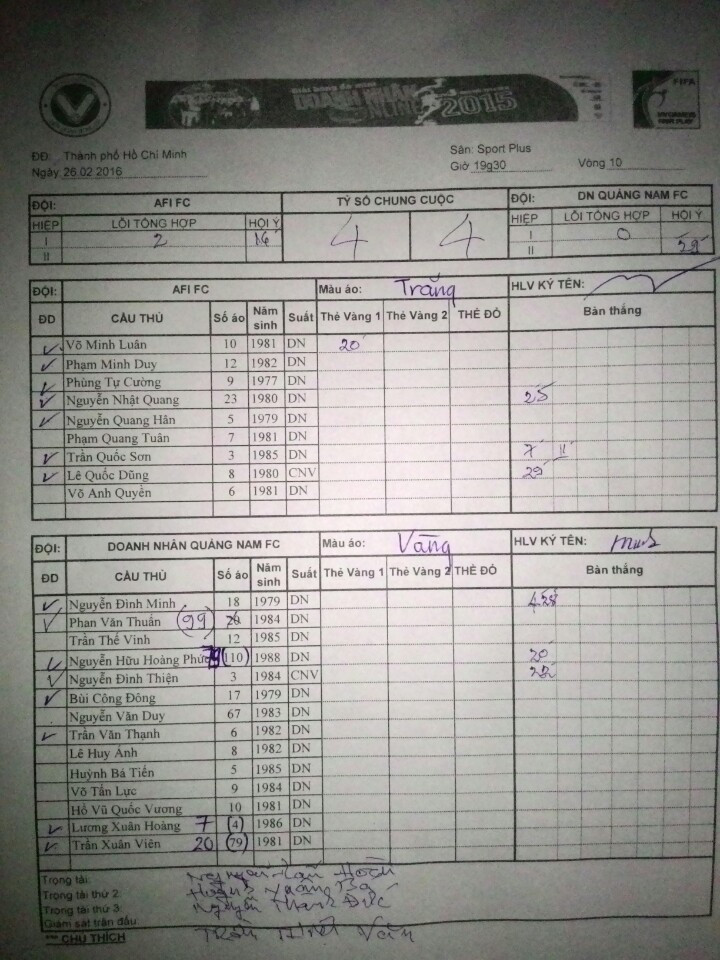 DOANH NHÂN
2015
FIFA
ĐĐ: Thành phố Hồ Chí Minh
Sân: Sport Plus
Ngày 26.02 2016
Giờ 19g30
Vòng 10
ĐỘI: AFI FC TỶ SỐ CHUNG CUỘC ĐỘI: DN QUẢNG NAM FC
HIỆP LỖI TỔNG HỢP HỘI Ý 4 4 HIỆP LỖI TỔNG HỢP HỘI Ý
I 2 16 I 0
II II 29
ĐỘI: AFI FC Màu áo: Trắng HLV KÝ TÊN:
ĐD CẦU THỦ Số áo Năm sinh Suất Thẻ Vàng 1 Thẻ Vàng 2 THẺ ĐỎ Bàn thắng
Võ Minh Luân 10 1981 DN 20
Phạm Minh Duy 12 1982 DN
Phùng Tự Cường 9 1977 DN
Nguyễn Nhật Quang 23 1980 DN 25
Nguyễn Quang Hân 5 1979 DN
Phạm Quang Tuân 7 1981 DN
Trần Quốc Sơn 3 1985 DN 7 11
Lê Quốc Dũng 8 1980 CNV 29
Võ Anh Quyền 6 1981 DN
ĐỘI: DOANH NHÂN QUẢNG NAM FC Màu áo: Vàng HLV KÝ TÊN:
ĐD CẦU THỦ Số áo Năm sinh Suất Thẻ Vàng 1 Thẻ Vàng 2 THẺ ĐỎ Bàn thắng
Nguyễn Đình Minh 18 1979 DN 4 28
Phan Văn Thuấn (99) 1984 DN
Trần Thế Vinh 12 1985 DN
Nguyễn Hữu Hoàng Phúc (110) 1988 DN 20
Nguyễn Đình Thiện 3 1984 CNV 22
Bùi Công Đông 17 1979 DN
Nguyễn Văn Duy 67 1983 DN
Trần Văn Thạnh 6 1982 DN
Lê Huy Anh 8 1982 DN
Huỳnh Bá Tiến 5 1985 DN
Võ Tấn Lực 9 1984 DN
Hồ Vũ Quốc Vương 10 1981 DN
Lương Xuân Hoàng 7 (4) 1986 DN
Trần Xuân Viên 20 (79) 1981 DN
Trọng tài: Nguyễn
Trọng tài thứ 2: Huỳnh
Trọng tài thứ 3: Nguyễn Thanh Đức
Giám sát trận đấu: Trần Văn
*** CHÚ THÍCH